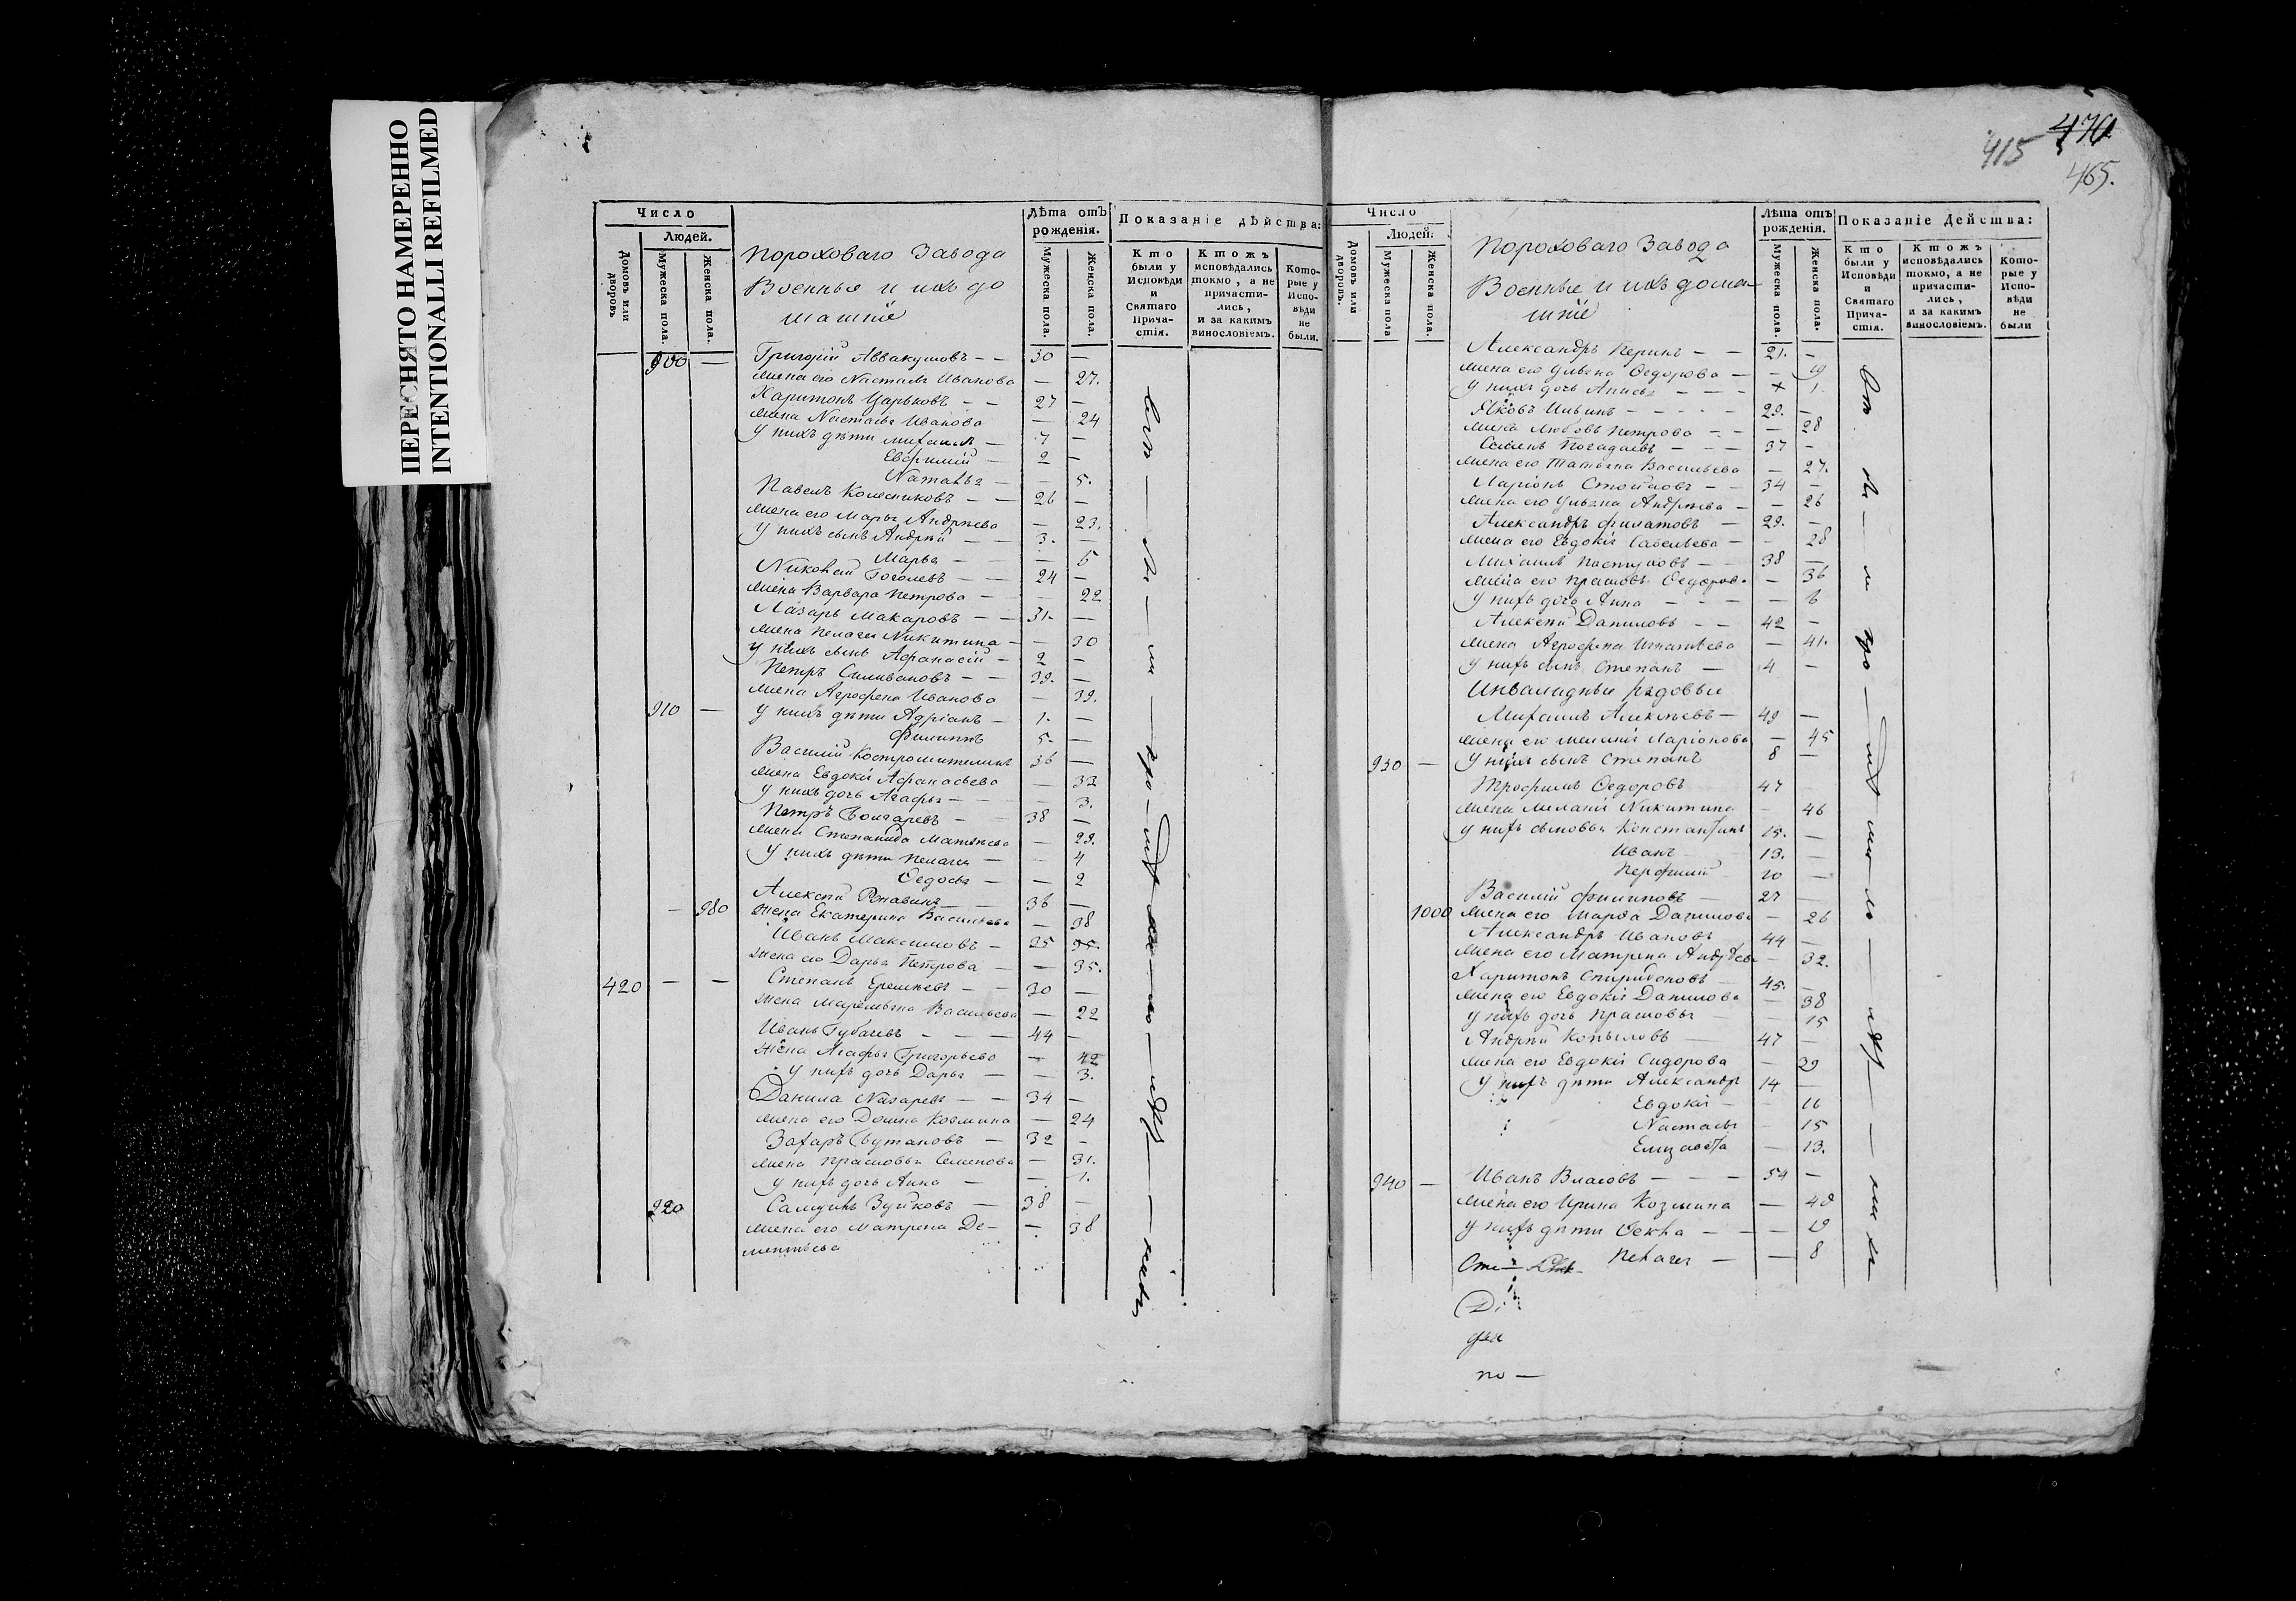 ПЕРЕСНЯТО НАМЕРЕННО
INTENTIONALLI REFILMED
Число
Людей.
Домовъ или дворовъ
Мужеска пола.
Женска пола.
Пороховаго Завода
Военные и ихъ до
машніе
Лѣта отъ рожденія.
Мужеска пола.
Женска пола.
Показаніе дѣйства:
Кто были у Исповѣди и Святаго Прича-стія.
Ктожъ исповѣдались токмо, а не причасти-лись, и за какимъ винословіемъ.
Кото-рые у Испо-вѣди не были.
900 — Григорій Аввакумовъ — — 30 —
жена его Настасья Иванова — 27.
Харитонъ Царьковъ — — 27 —
жена Настасья Иванова — 24
У нихъ дѣти Михаилъ — 7 —
Евфимій — 2 —
Наталья — — 5.
Павелъ Колесниковъ — — 26 —
жена его Марья Андрѣева — 23.
У нихъ сынъ Андрей — — 3. —
Марья — — 5
Николай Гоголевъ — — 24 —
жена Варвара Петрова — — 22
Лазарь Макаровъ — — 31. —
жена Пелагея Никитина — — 30
у нихъ сынъ Афанасій — 2 —
Петръ Силивановъ — — 39. —
жена Агрофена Иванова — 39.
910 — У нихъ дѣти Адріанъ — 1. —
Филиппъ 5. —
Василій 36 —
жена Евдокія Афанасьева — 33
у нихъ дочь Агафья — — 3.
Петръ 38 —
жена Степанида Матвѣева — 29.
У нихъ дѣти Пелагея — — 4
Ѳедосья — — 2
Алексѣй 36 —
— 980 жена Екатерина Васильева — 38
Иванъ Максимовъ — 25 35.
жена его Дарья Петрова — — 35.
420 — — Степанъ Еремѣевъ — — 30 —
жена Васильева — 22
Иванъ Губачевъ — — — 44 —
жена Агафья Григорьева — 42
У нихъ дочь Дарья — — 3.
Данила Назаревъ — — 34 —
жена его Домна Козмина — 24
Захаръ — 32 —
жена Прасковья Семенова — 31.
у нихъ дочь Анна — — 1.
920 Зуйковъ — 38 —
жена его Матрена Де- — 38
ментьева
415
470
465.
Число
Людей.
Домовъ или дворовъ.
Мужеска пола
Женска пола.
Пороховаго Завода
Военные и ихъ дома-
шніе
Лѣта отъ рожденія.
Мужеска пола.
Женска пола.
Показаніе Действа:
Кто были у Исповѣди и Святаго Прича-стія.
Ктожъ исповѣдались токмо, а не причасти-лись, и за какимъ винословіемъ.
Кото-рые у Испо-вѣди не были
Александръ — — 21. —
жена его Ульяна Ѳедорова — — 19
У нихъ дочь Анисья — — — 1.
Яковъ Ильинъ — — — 29. —
жена Любовь Петрова — — — 28
Семенъ Погадаевъ — — — 37 —
жена его Татьяна Васильева — 27.
Ларіонъ — — 34 —
жена его Ульяна Андрѣева — — 26
Александръ Филатовъ — 29. —
жена его Евдокія Савельева — — 28
Михаилъ Пастуховъ — — 38 —
жена его Прасковья Ѳедорова — 36
У нихъ дочь Анна — — — 6
Алексѣй Даниловъ — — 42 —
жена Агрофена Игнатьева — 41.
У нихъ сынъ Степанъ — 4 —
Инвалидные рядовые
Михаилъ Алексѣевъ — 49 —
жена его Меланія Ларіонова — 45
930 — У нихъ сынъ Степанъ 8 —
Трофимъ Ѳедоровъ 47 —
жена Меланія Никитина — 46
у нихъ сыновья Константинъ 15. —
Иванъ 13. —
Перфилій 10 —
Василій Филиповъ — 27 —
1000 жена его Марѳа Данилова — 26
Александръ Ивановъ 44 —
жена его Матрена — 32.
Харитонъ Спиридоновъ 45. —
жена его Евдокія Данилова — 38
У нихъ дочь Прасковья — — 15
Андрей Копыловъ — 47 —
жена его Евдокія Сидорова — 29
У нихъ дѣти Александръ 14 —
Евдокія — 16
Настасья — 15
Елизавета — 13.
940 — Иванъ Власовъ — — — 54 —
жена его Ирина Козмина — 48
У нихъ дѣти Ѳекла — — 19
Пелагея — — 8
по —